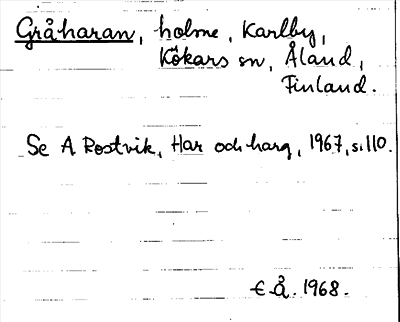 Gråharan, holme, Karlby,
Kökars sn, Åland,
Finland.
Se A Rostvik, Har och harg, 1967, s.110.
E.Å. 1968.